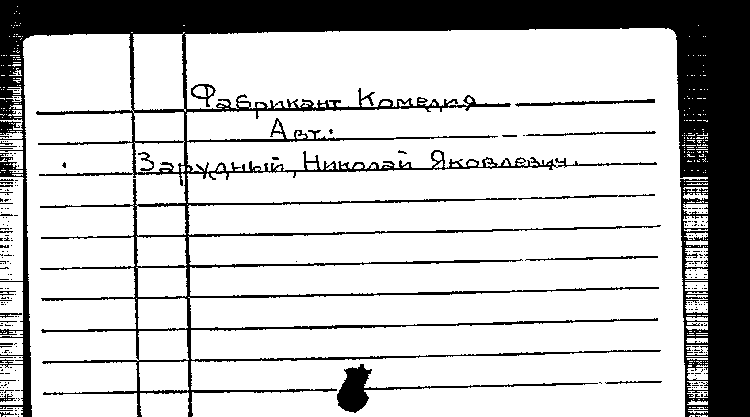 Фабрикант Комедия
Авт.:
Зарудный, Николай Яковлевич.